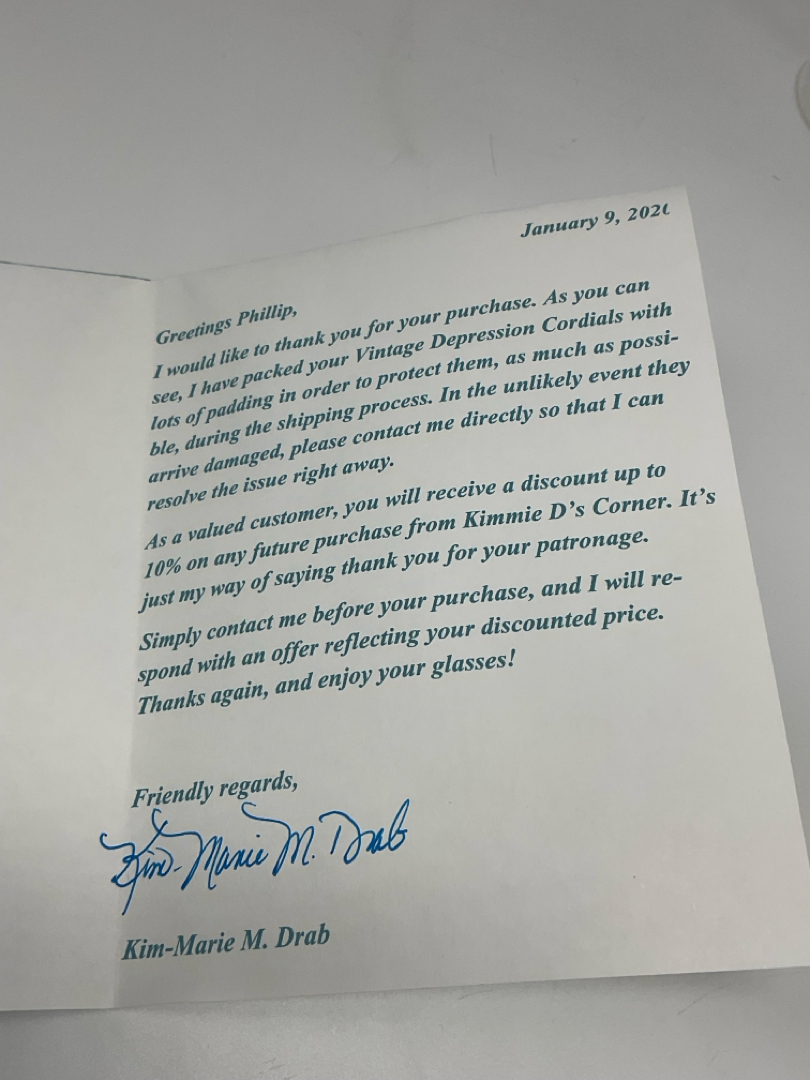 January 9,
Greetings Phillip,
I would like to thank you for your purchase. As you can
see, I have packed your Vintage Depression Cordials with
lots of padding in order to protect them, as much as possi-
ble, during the shipping process. In the unlikely event they
arrive damaged, please contact me directly so that I can
resolve the issue right away.
As a valued customer, you will receive a discount up to
10% on any future purchase from Kimmie D’s Corner. It’s
just my way of saying thank you for your patronage.
Simply contact me before your purchase, and I will re-
spond with an offer reflecting your discounted price.
Thanks again, and enjoy your glasses!
Friendly regards,
Kim-Marie M. Drab
Kim-Marie M. Drab